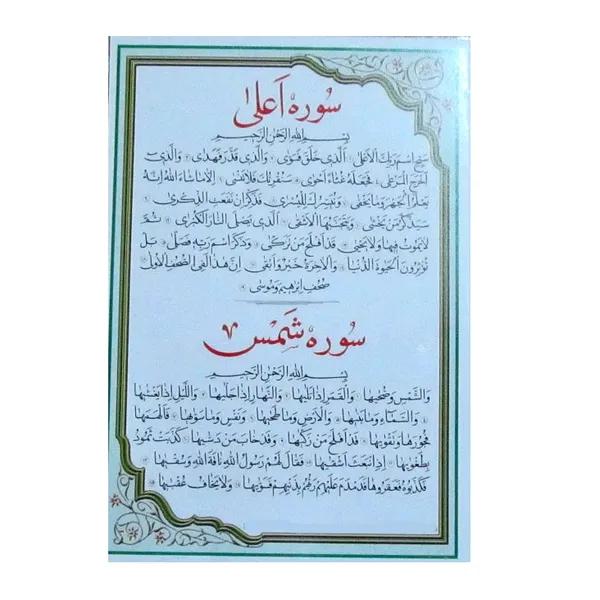 سوره اعلی
بِسْمِ اللهِ الرَّحْمنِ الرَّحیمِ
سَبِّحِ اسْمَ رَبِّكَ الْاَعْلَی الَّذی خَلَقَ فَسَوّی وَالَّذی قَدَّرَ فَهَدی وَالَّذی
اَخْرَجَ الْمَرْعی فَجَعَلَهُ غُثاءً اَحْوی سَنُقْرِئُكَ فَلا تَنْسی اِلاّ ما شاءَ اللهُ اِنَّهُ
یَعْلَمُ الْجَهْرَ وَما یَخْفی وَنُیَسِّرُكَ لِلْیُسْری فَذَكِّرْ اِنْ نَفَعَتِ الذِّكْری
سَیَذَّكَّرُ مَنْ یَخْشی وَیَتَجَنَّبُهَا الْاَشْقَی الَّذی یَصْلَی النّارَ الْكُبْری ثُمَّ
لا یَمُوتُ فیها وَلا یَحْیی قَدْ اَفْلَحَ مَنْ تَزَكّی وَذَكَرَ اسْمَ رَبِّهِ فَصَلّی بَلْ
تُؤْثِرُونَ الْحَیوةَ الدُّنْیا وَالْاخِرَةُ خَیْرٌ وَاَبْقی اِنَّ هذا لَفِی الصُّحُفِ الْاُولی
صُحُفِ اِبْرهیمَ وَمُوسی
سوره شمس
بِسْمِ اللهِ الرَّحْمنِ الرَّحیمِ
وَالشَّمْسِ وَضُحیها وَالْقَمَرِ اِذا تَلیها وَالنَّهارِ اِذا جَلّیها وَاللَّیْلِ اِذا یَغْشیها
وَالسَّماءِ وَما بَنیها وَالْاَرْضِ وَما طَحیها وَنَفْسٍ وَما سَوّیها فَاَلْهَمَها
فُجُورَها وَتَقْویها قَدْ اَفْلَحَ مَنْ زَكّیها وَقَدْ خابَ مَنْ دَسّیها كَذَّبَتْ ثَمُودُ
بِطَغْویها اِذِ انْبَعَثَ اَشْقیها فَقالَ لَهُمْ رَسُولُ اللهِ ناقَةَ اللهِ وَسُقْیها
فَكَذَّبُوهُ فَعَقَرُوها فَدَمْدَمَ عَلَیْهِمْ رَبُّهُمْ بِذَنْبِهِمْ فَسَوّیها وَلا یَخافُ عُقْبیها